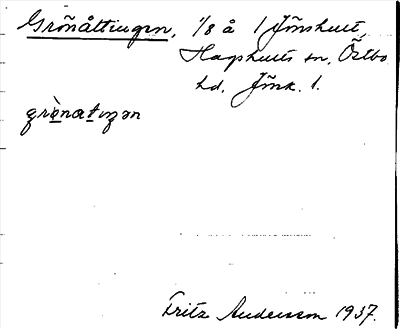 Grönåttingen, 1/8 å 1 Jönshult,
Hagshults sn, Östbo
hd, Jönk. l.
grònatıŋən
Fritz Andersson 1937.